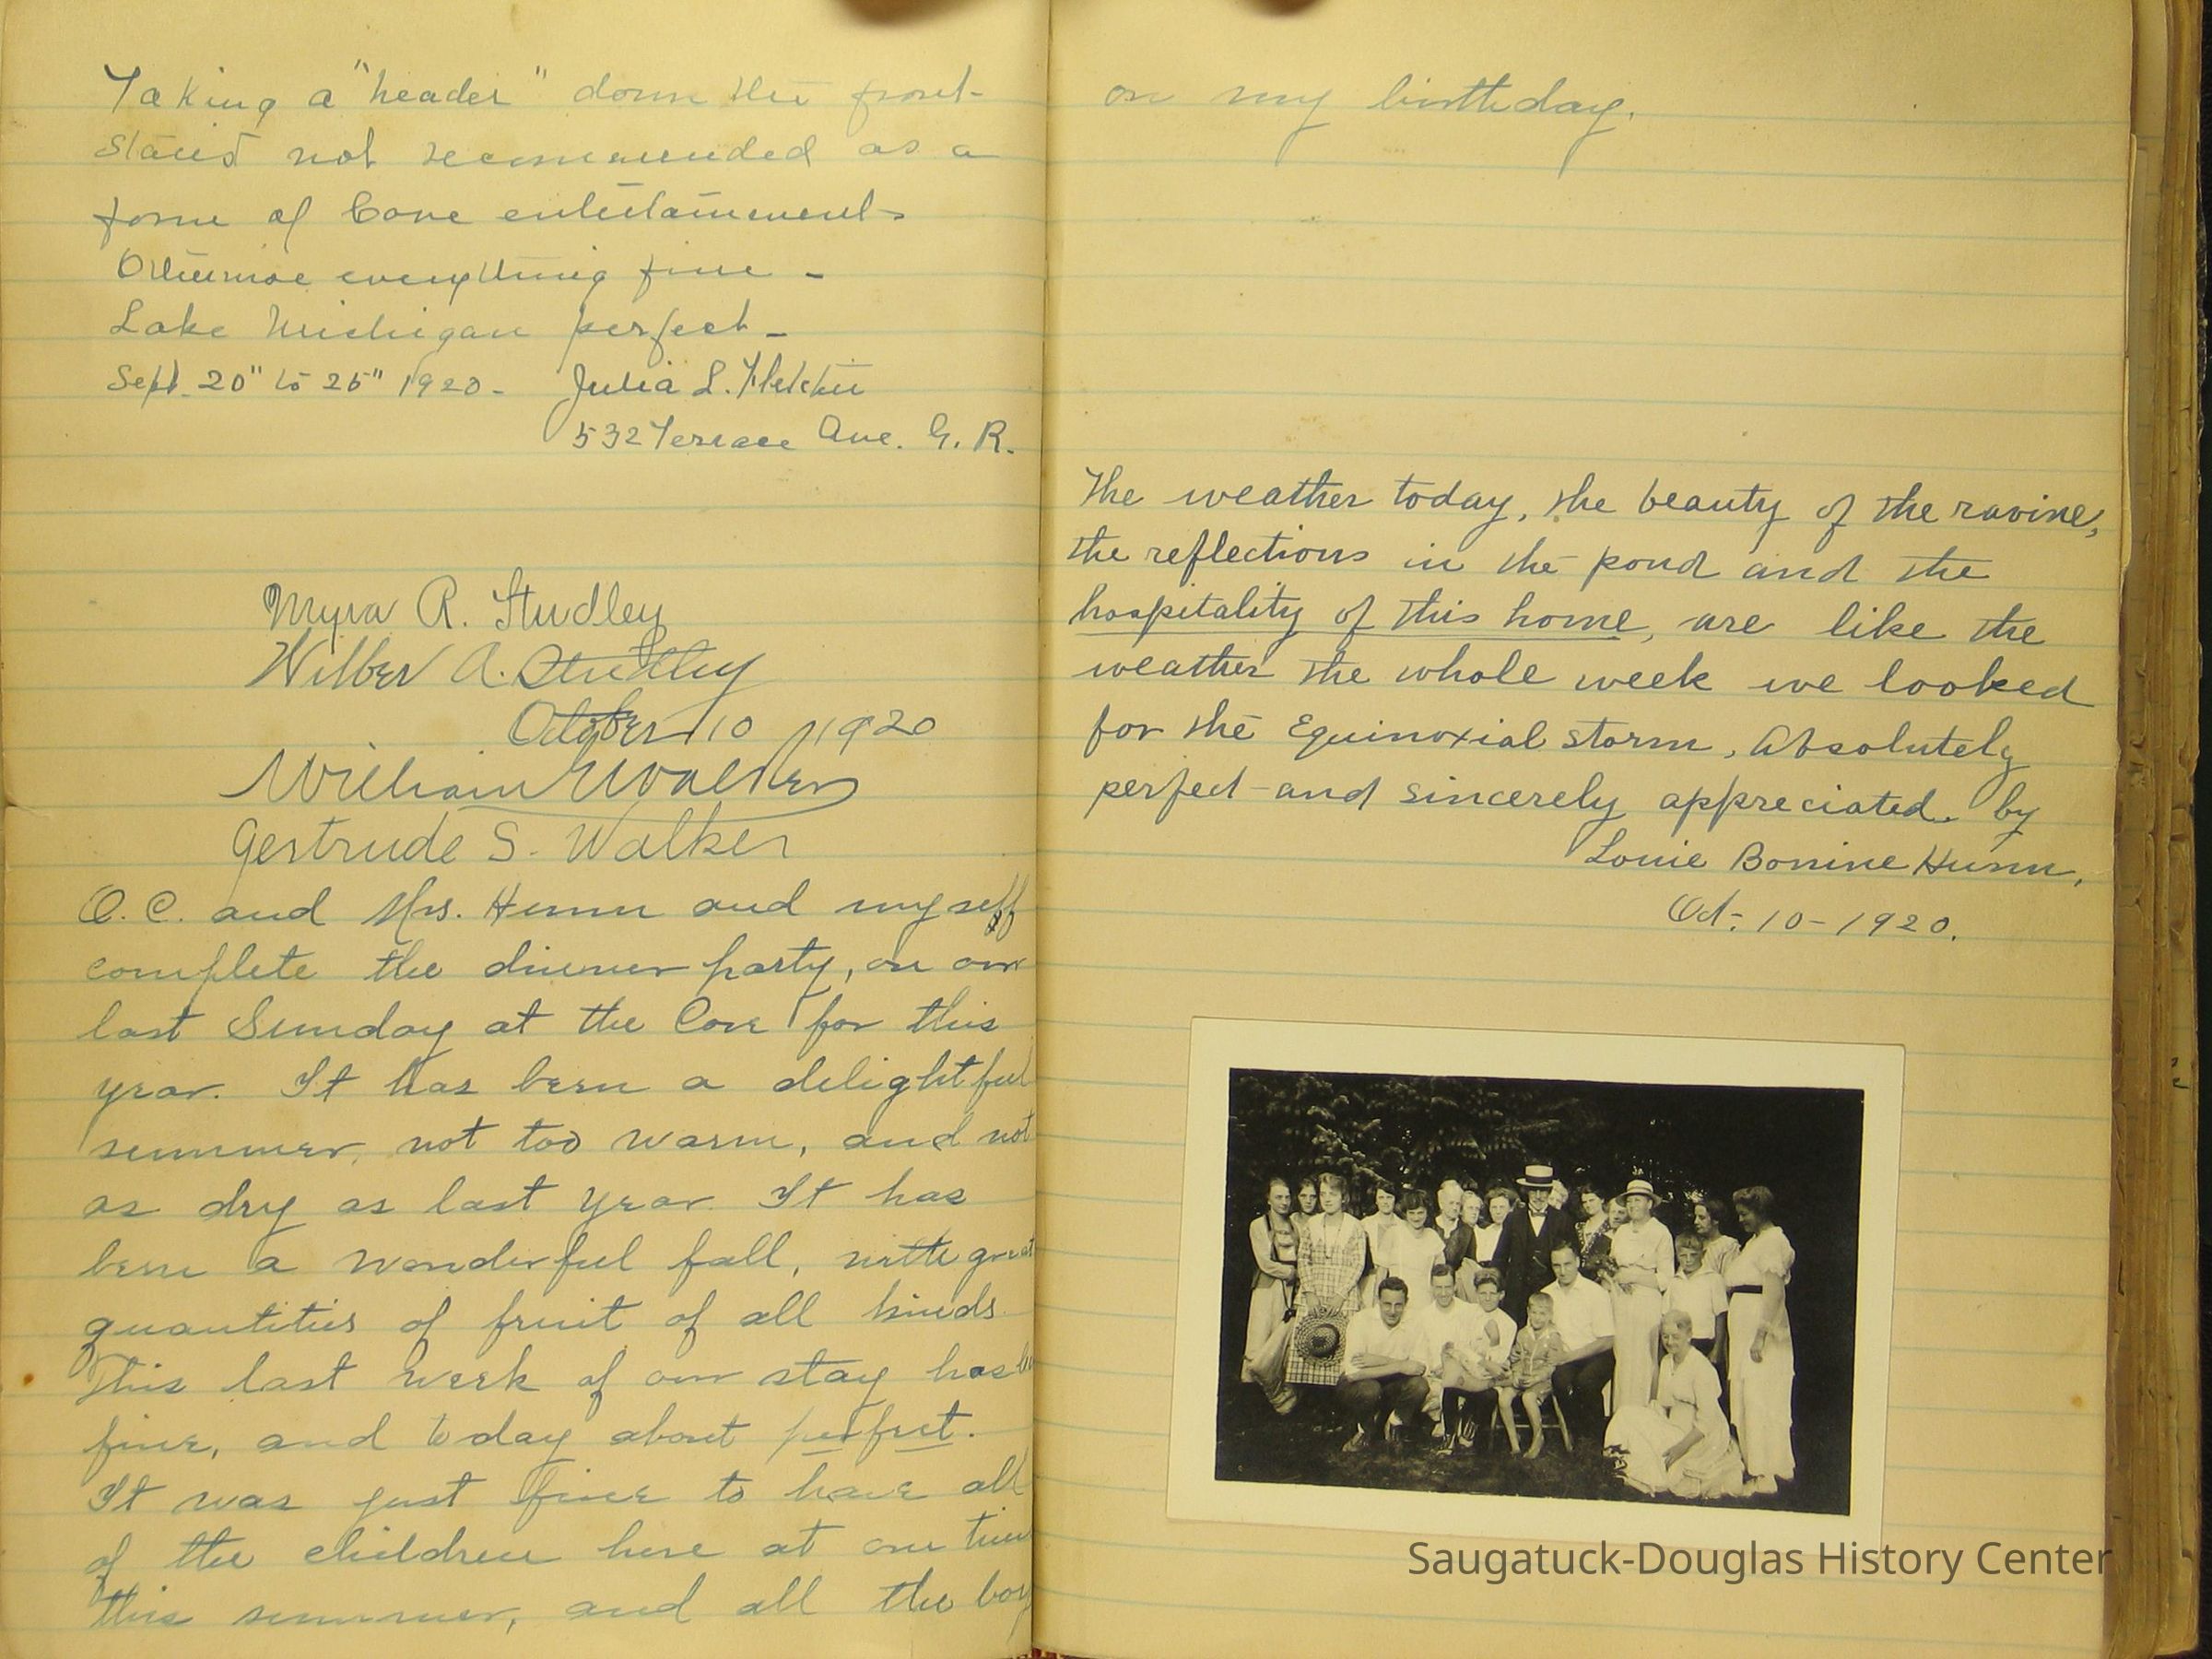 Taking a "header" down the front
stairs not recommended as a
form of Cove entertainment
Otherwise everything fine -
Lake Michigan perfect -
Sept. 20" to 25" 1920 - Julia L. Fletcher
532 Terrace Ave. G. R.
Myra R. Studley
Wilber A. Studley
October 10 1920
William Walker
Gertrude S. Walker
O. C. and Mrs. Hunn and myself
complete the dinner party, on our
last Sunday at the Cove for this
year. It has been a delightful
summer, not too warm, and not
as dry as last year. It has
been a wonderful fall, with great
quantities of fruit of all kinds.
This last week of our stay has
fine, and today about perfect.
It was just fine to have all
of the children here at one time
this summer, and all the boys
on my birthday.
The weather today, the beauty of the ravine,
the reflections in the pond and the
hospitality of this home, are like the
weather the whole week we looked
for the Equinoxial storm, Absolutely
perfect - and sincerely appreciated. by
Louie Bonine Hunn.
Oct. 10 - 1920.
Saugatuck-Douglas History Center